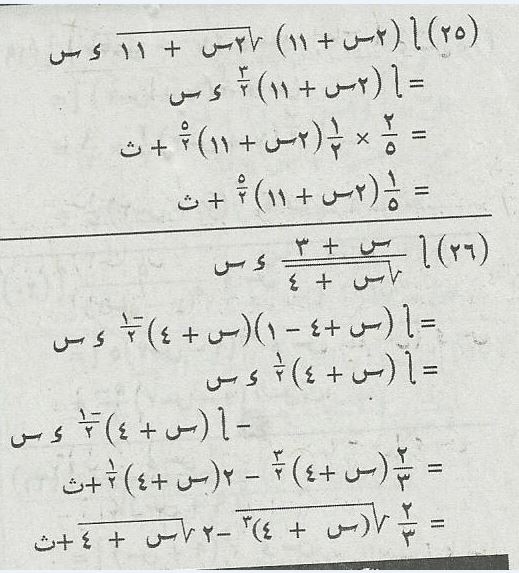 (٢٥) ∫ (٢س + ١١) √(٢س + ١١) ء س
= ∫ (٢س + ١١)^(٣/٢) ء س
= ٢/٥ × ١/٢ (٢س + ١١)^(٥/٢) + ث
= ١/٥ (٢س + ١١)^(٥/٢) + ث
(٢٦) ∫ (س + ٣)/√(س + ٤) ء س
= ∫ (س + ٤ − ١)(س + ٤)^(−١/٢) ء س
= ∫ (س + ٤)^(١/٢) ء س
− ∫ (س + ٤)^(−١/٢) ء س
= ٢/٣ (س + ٤)^(٣/٢) − ٢(س + ٤)^(١/٢) + ث
= ٢/٣ √(س + ٤)^٣ − ٢√(س + ٤) + ث